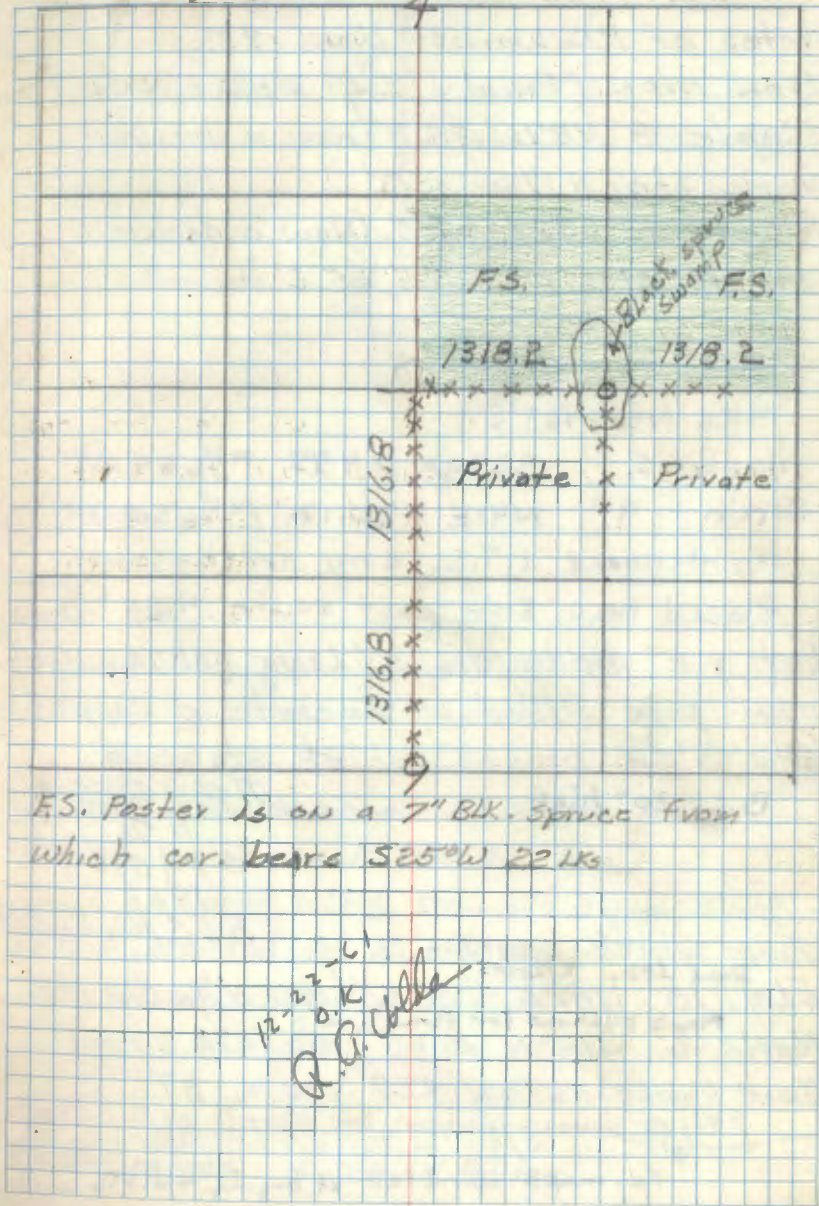 4
Black spruce
swamp
F.S.
F.S.
1318.2
1318.2
1316.8
Private
Private
1316.8
F.S. Poster is on a 7" BLK. Spruce from
which cor. bears S25°W 22 LKs
12-22-61
O.K
R.A.